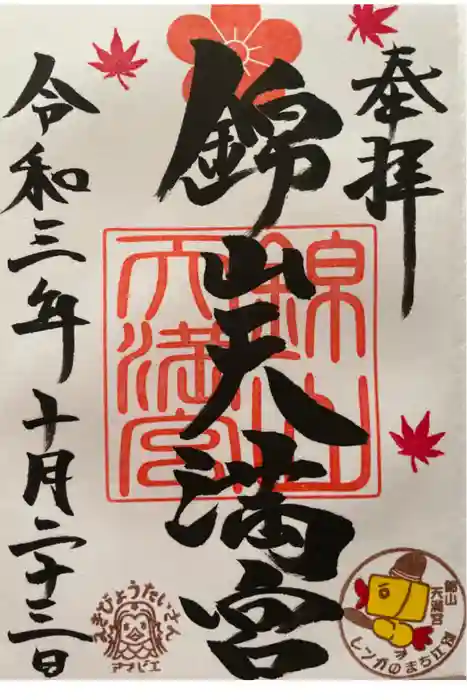 奉拝
錦山天満宮
錦山天満宮
令和三年十月二十三日
えきびょうたいさん
アマビエ
錦山
天満宮
レンガのまち江別